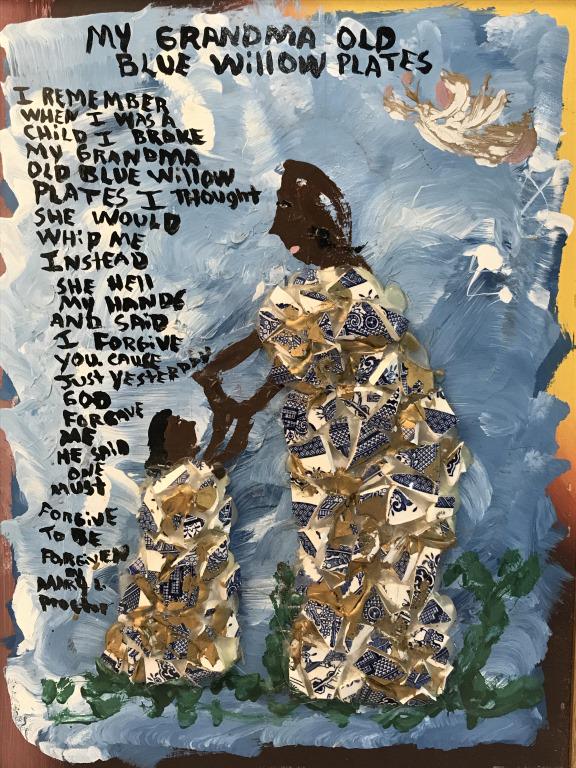 MY GRANDMA OLD
BLUE WillOW PLATES
I REMEMBER
WHEN I WAS A
CHILD I BROKE
MY GRANDMA
OLD BLUE WillOW
PLATES I THOUGHT
SHE WOULD
WHIP ME
INSTEAD
SHE HEll
MY HANDS
AND SAID
I FORGIVE
YOU CAUSE
JUST YESTERDAY
GOD
FORGAVE
ME
HE SAID
ONE
MUST
FORGIVE
TO BE
FORGIVEN
BY
MARY L.
PROCTOR